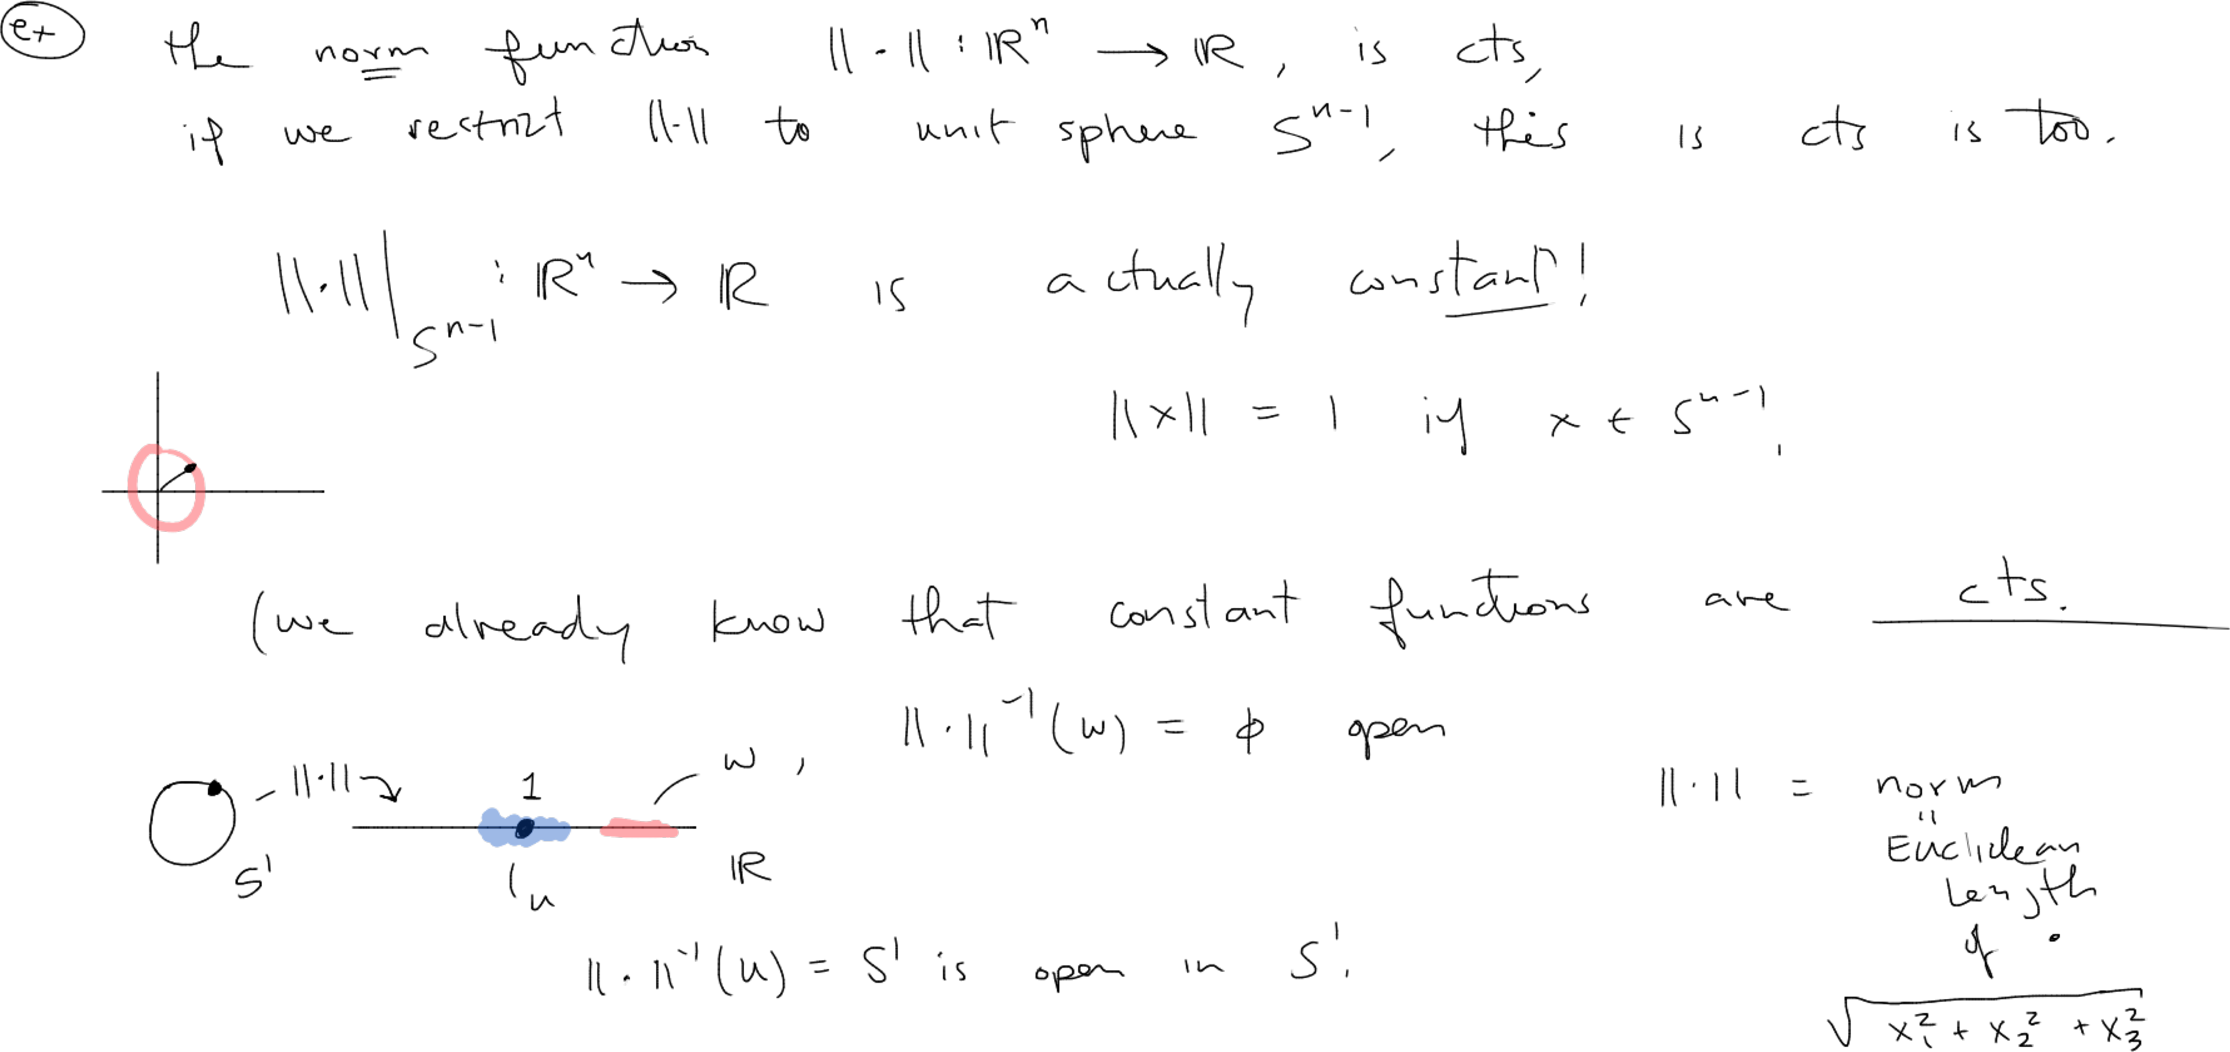 ex the norm function ||·|| : ℝⁿ → ℝ, is cts,
if we restrict ||·|| to unit sphere Sⁿ⁻¹, this is cts is too.
||·|| |_{Sⁿ⁻¹} : ℝⁿ → ℝ is actually constant!
||x|| = 1 if x ∈ Sⁿ⁻¹.
(we already know that constant functions are cts.
||·||⁻¹(w) = ϕ open
S¹ ||·|| 1 w,
u ℝ
||·||⁻¹(u) = S¹ is open in S¹.
||·|| = norm
"
Euclidean
length
of ·
√(x₁² + x₂² + x₃²)